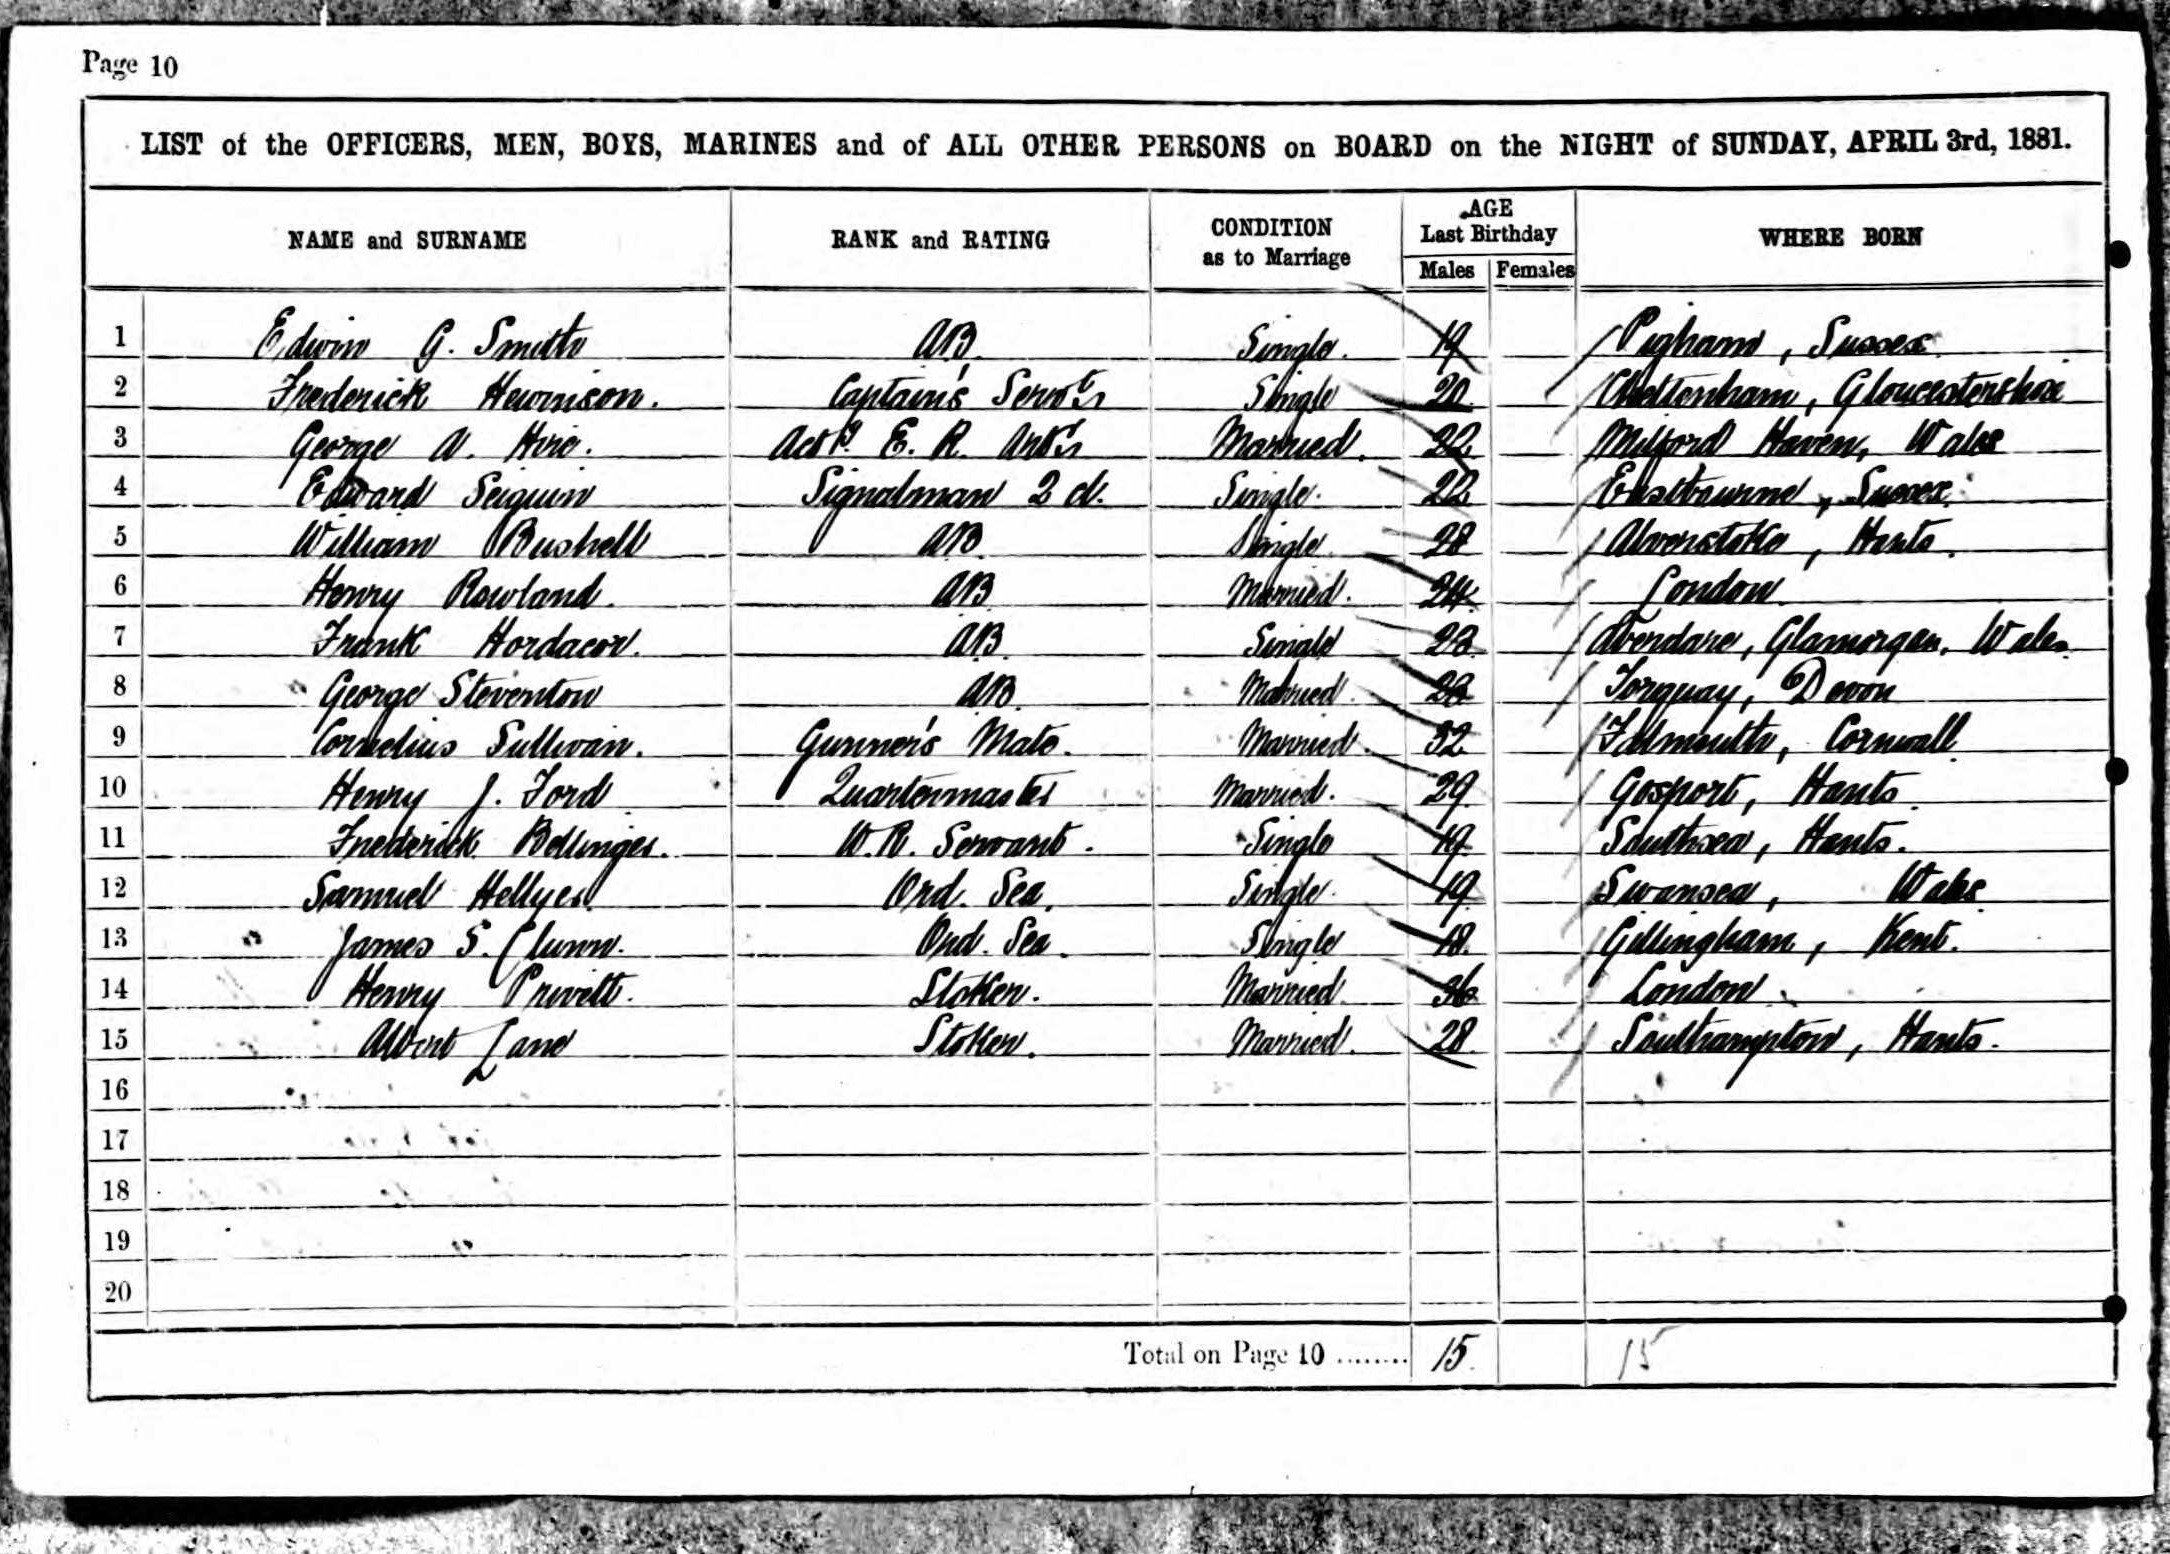 Page 10
LIST of the OFFICERS, MEN, BOYS, MARINES and of ALL OTHER PERSONS on BOARD on the NIGHT of SUNDAY, APRIL 3rd, 1881.
NAME and SURNAME RANK and RATING CONDITION as to Marriage AGE Last Birthday Males Females WHERE BORN
1 Edwin G. Smith AB. Single. 19 Pigham, Sussex
2 Frederick Hewinson. Captain's Servt. Single 20 Cheltenham, Gloucestershire
3 George A. Hire. Actg. E. R. Artr. Married. 22 Milford Haven, Wales
4 Edward Seiguin Signalman 2 cl. Single. 22 Eastbourne, Sussex.
5 William Bushell AB. Single 28 Alverstoke, Hants.
6 Henry Rowland. AB. Married. 24 London.
7 Frank Hordacor. AB. Single 23 Aberdare, Glamorgan, Wales.
8 George Steventon AB. Married. 23 Torquay, Devon
9 Cornelius Sullivan. Gunner's Mate. Married. 32 Falmouth, Cornwall.
10 Henry J. Ford Quartermaster Married. 29 Gosport, Hants.
11 Frederick Bellinger. W. R. Servant. Single 19 Southsea, Hants.
12 Samuel Hellyer. Ord. Sea. Single. 19 Swansea, Wales
13 James S. Clunn. Ord. Sea. Single 18. Gillingham, Kent.
14 Henry Privett. Stoker. Married. 36 London.
15 Albert Lane Stoker. Married. 28 Southampton, Hants.
16
17
18
19
20
Total on Page 10 ........ 15. 15